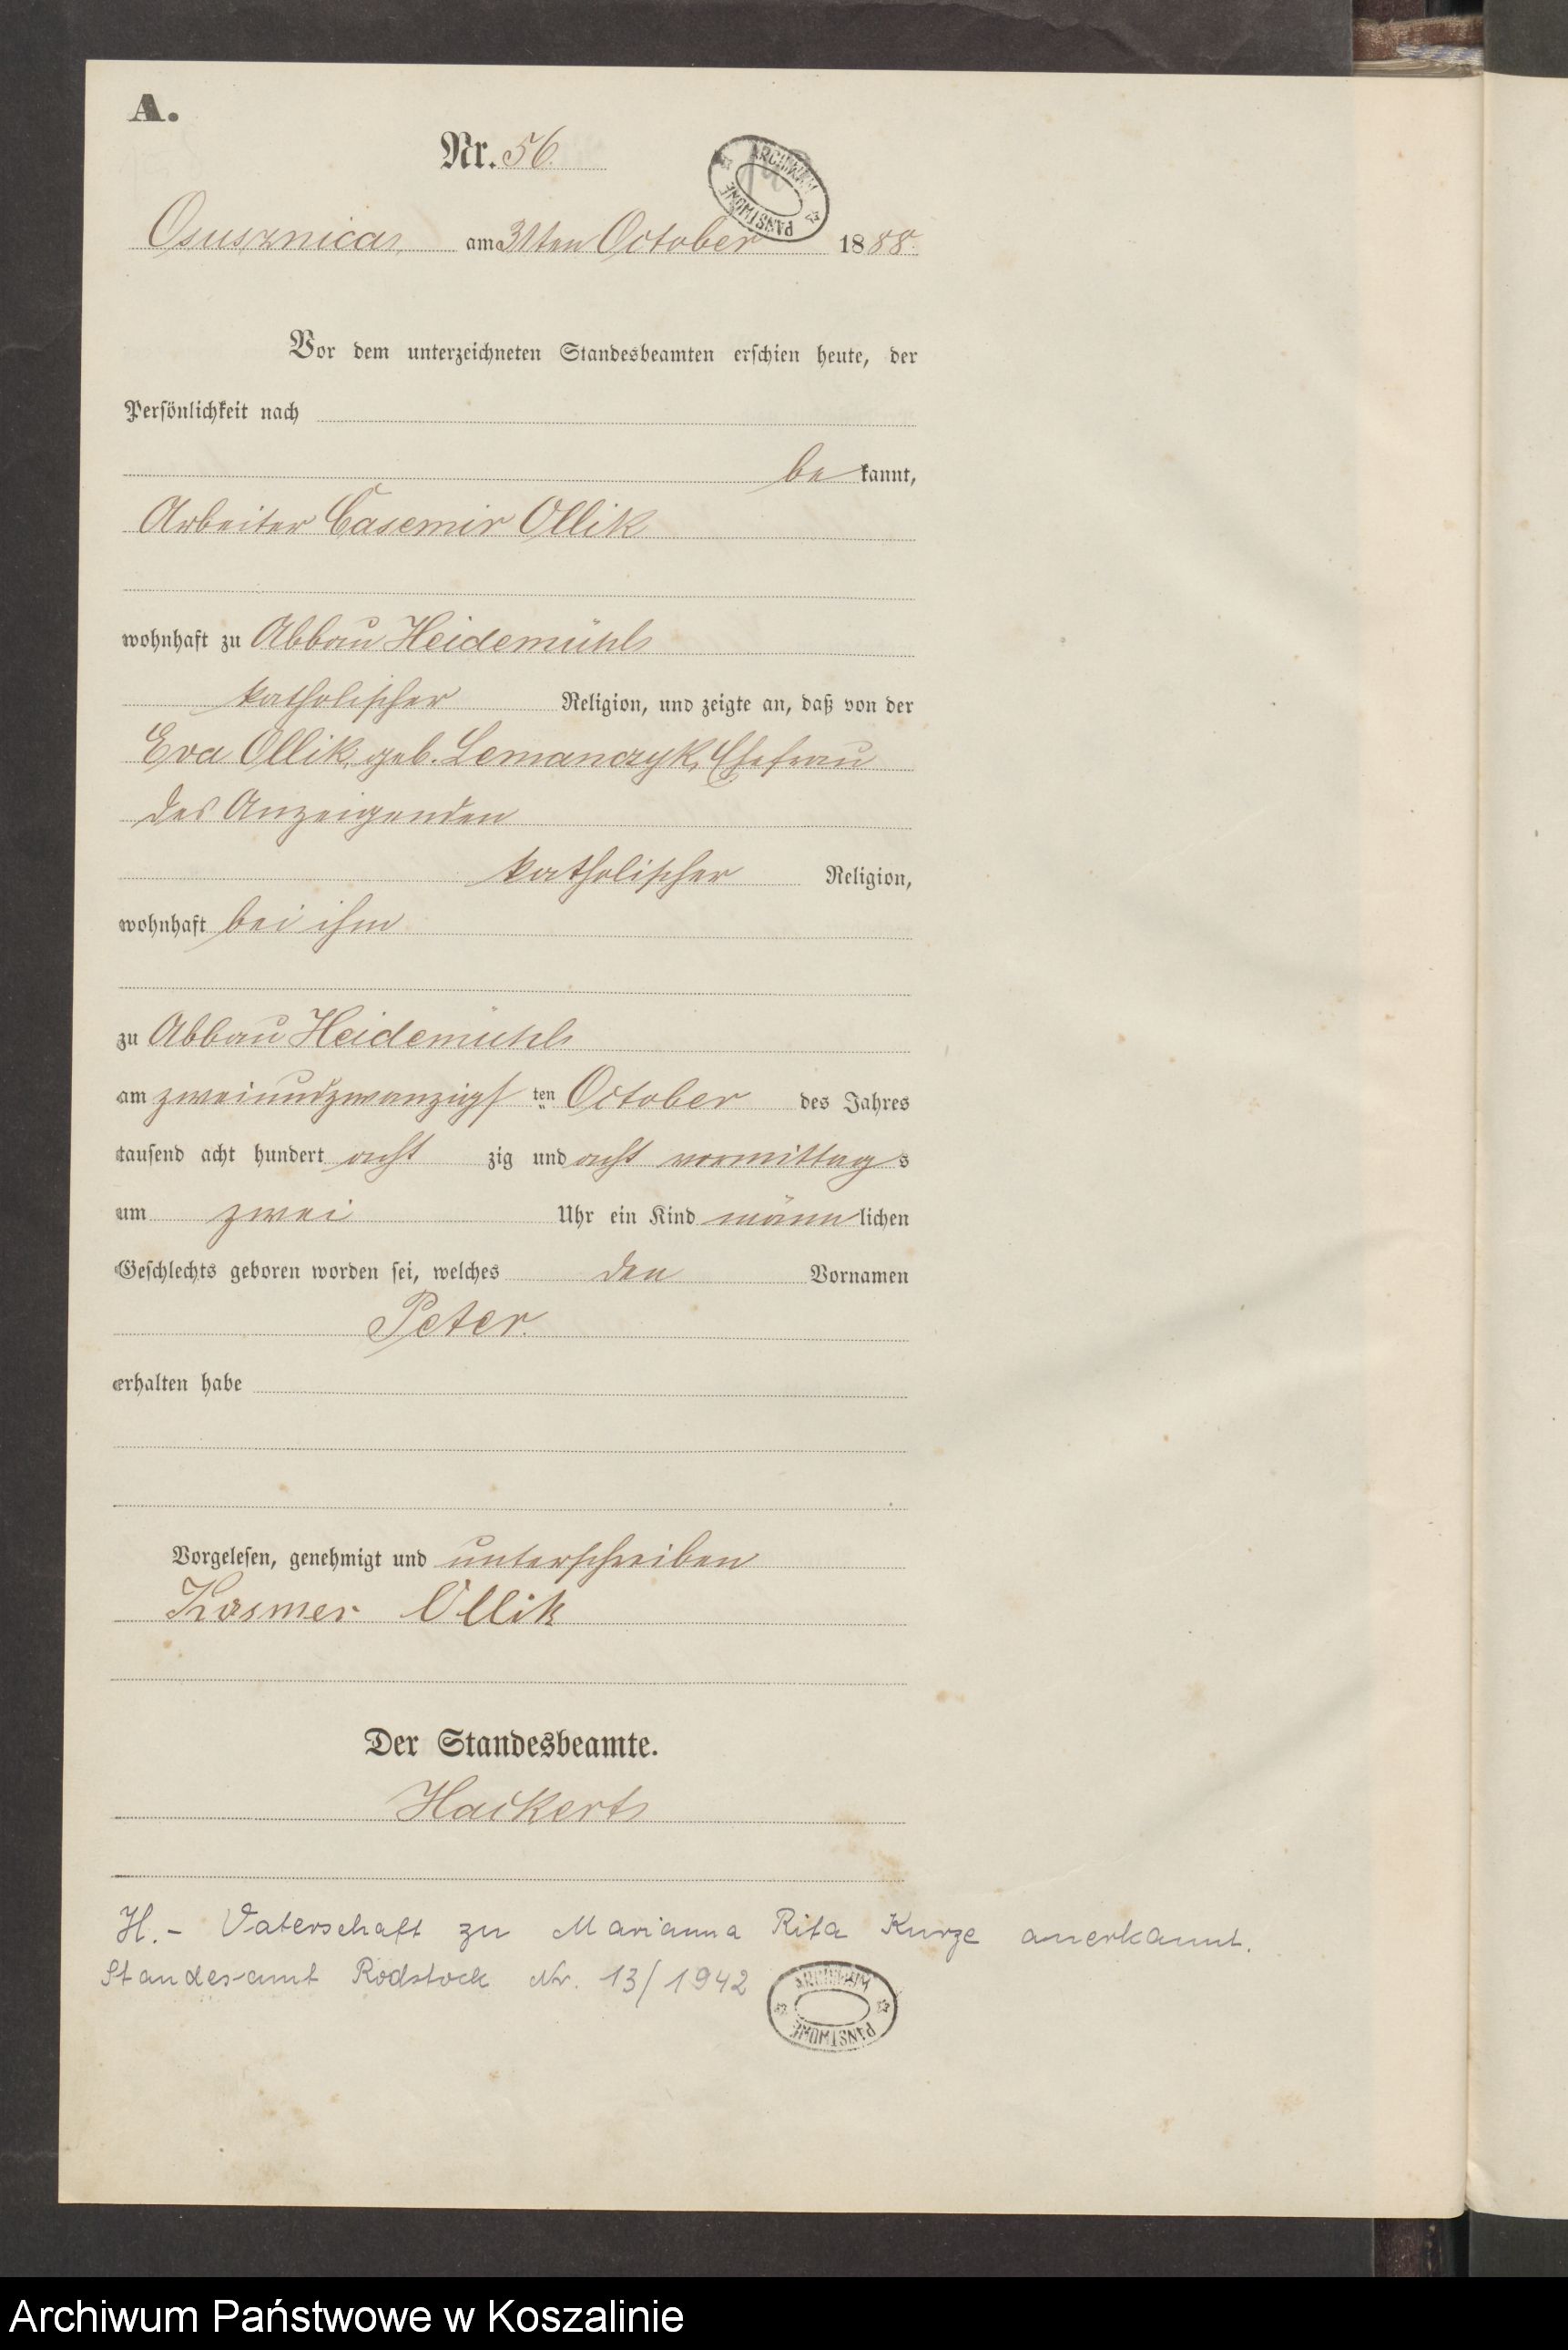 A.
Nr. 56.
ARCHIWUM PAŃSTWOWE
Osusznica, am 31ten October 1888.
Vor dem unterzeichneten Standesbeamten erschien heute, der
Persönlichkeit nach
be kannt,
Arbeiter Casemir Ollik
wohnhaft zu Abbau Heidemühl
katholischer Religion, und zeigte an, daß von der
Eva Ollik, geb. Lemanczyk, Ehefrau
des Anzeigenden
katholischer Religion,
wohnhaft bei ihm
zu Abbau Heidemühl
am zweiundzwanzigsten October des Jahres
tausend acht hundert acht zig und acht vormittags
um zwei Uhr ein Kind männlichen
Geschlechts geboren worden sei, welches den Vornamen
Peter.
erhalten habe
Vorgelesen, genehmigt und unterschrieben
Kasmer Ollik
Der Standesbeamte.
Hackert
H. - Vaterschaft zu Marianna Rita Kurze anerkannt.
Standesamt Rodstock Nr. 13/1942
ARCHIWUM PAŃSTWOWE
Archiwum Państwowe w Koszalinie